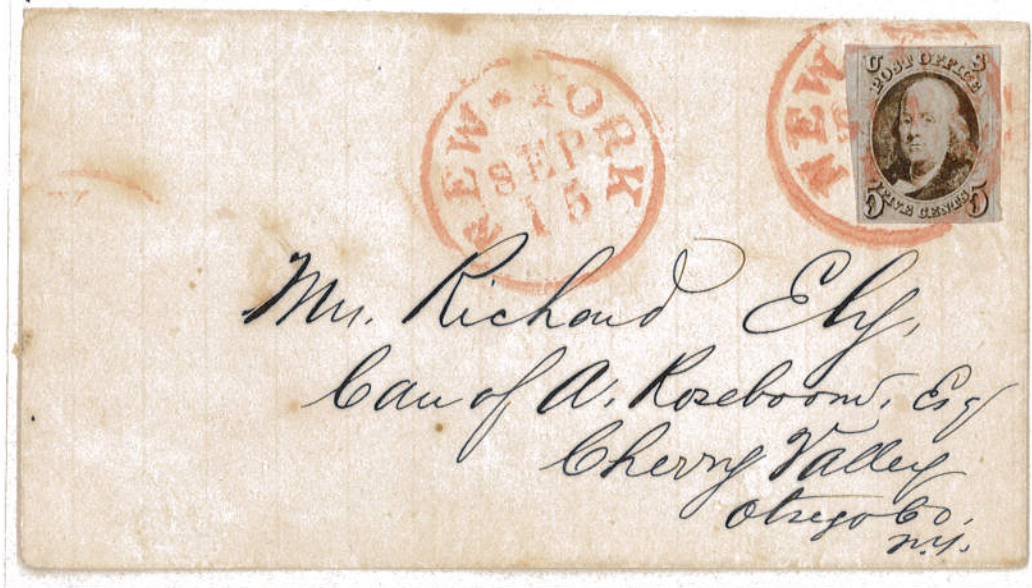 NEW-YORK
SEP
15
NEW
U S
POST OFFICE
5 FIVE CENTS 5
Mr. Richard Ely,
Care of A. Roseboom, Esq
Cherry Valley
Otsego Co.
N.Y.